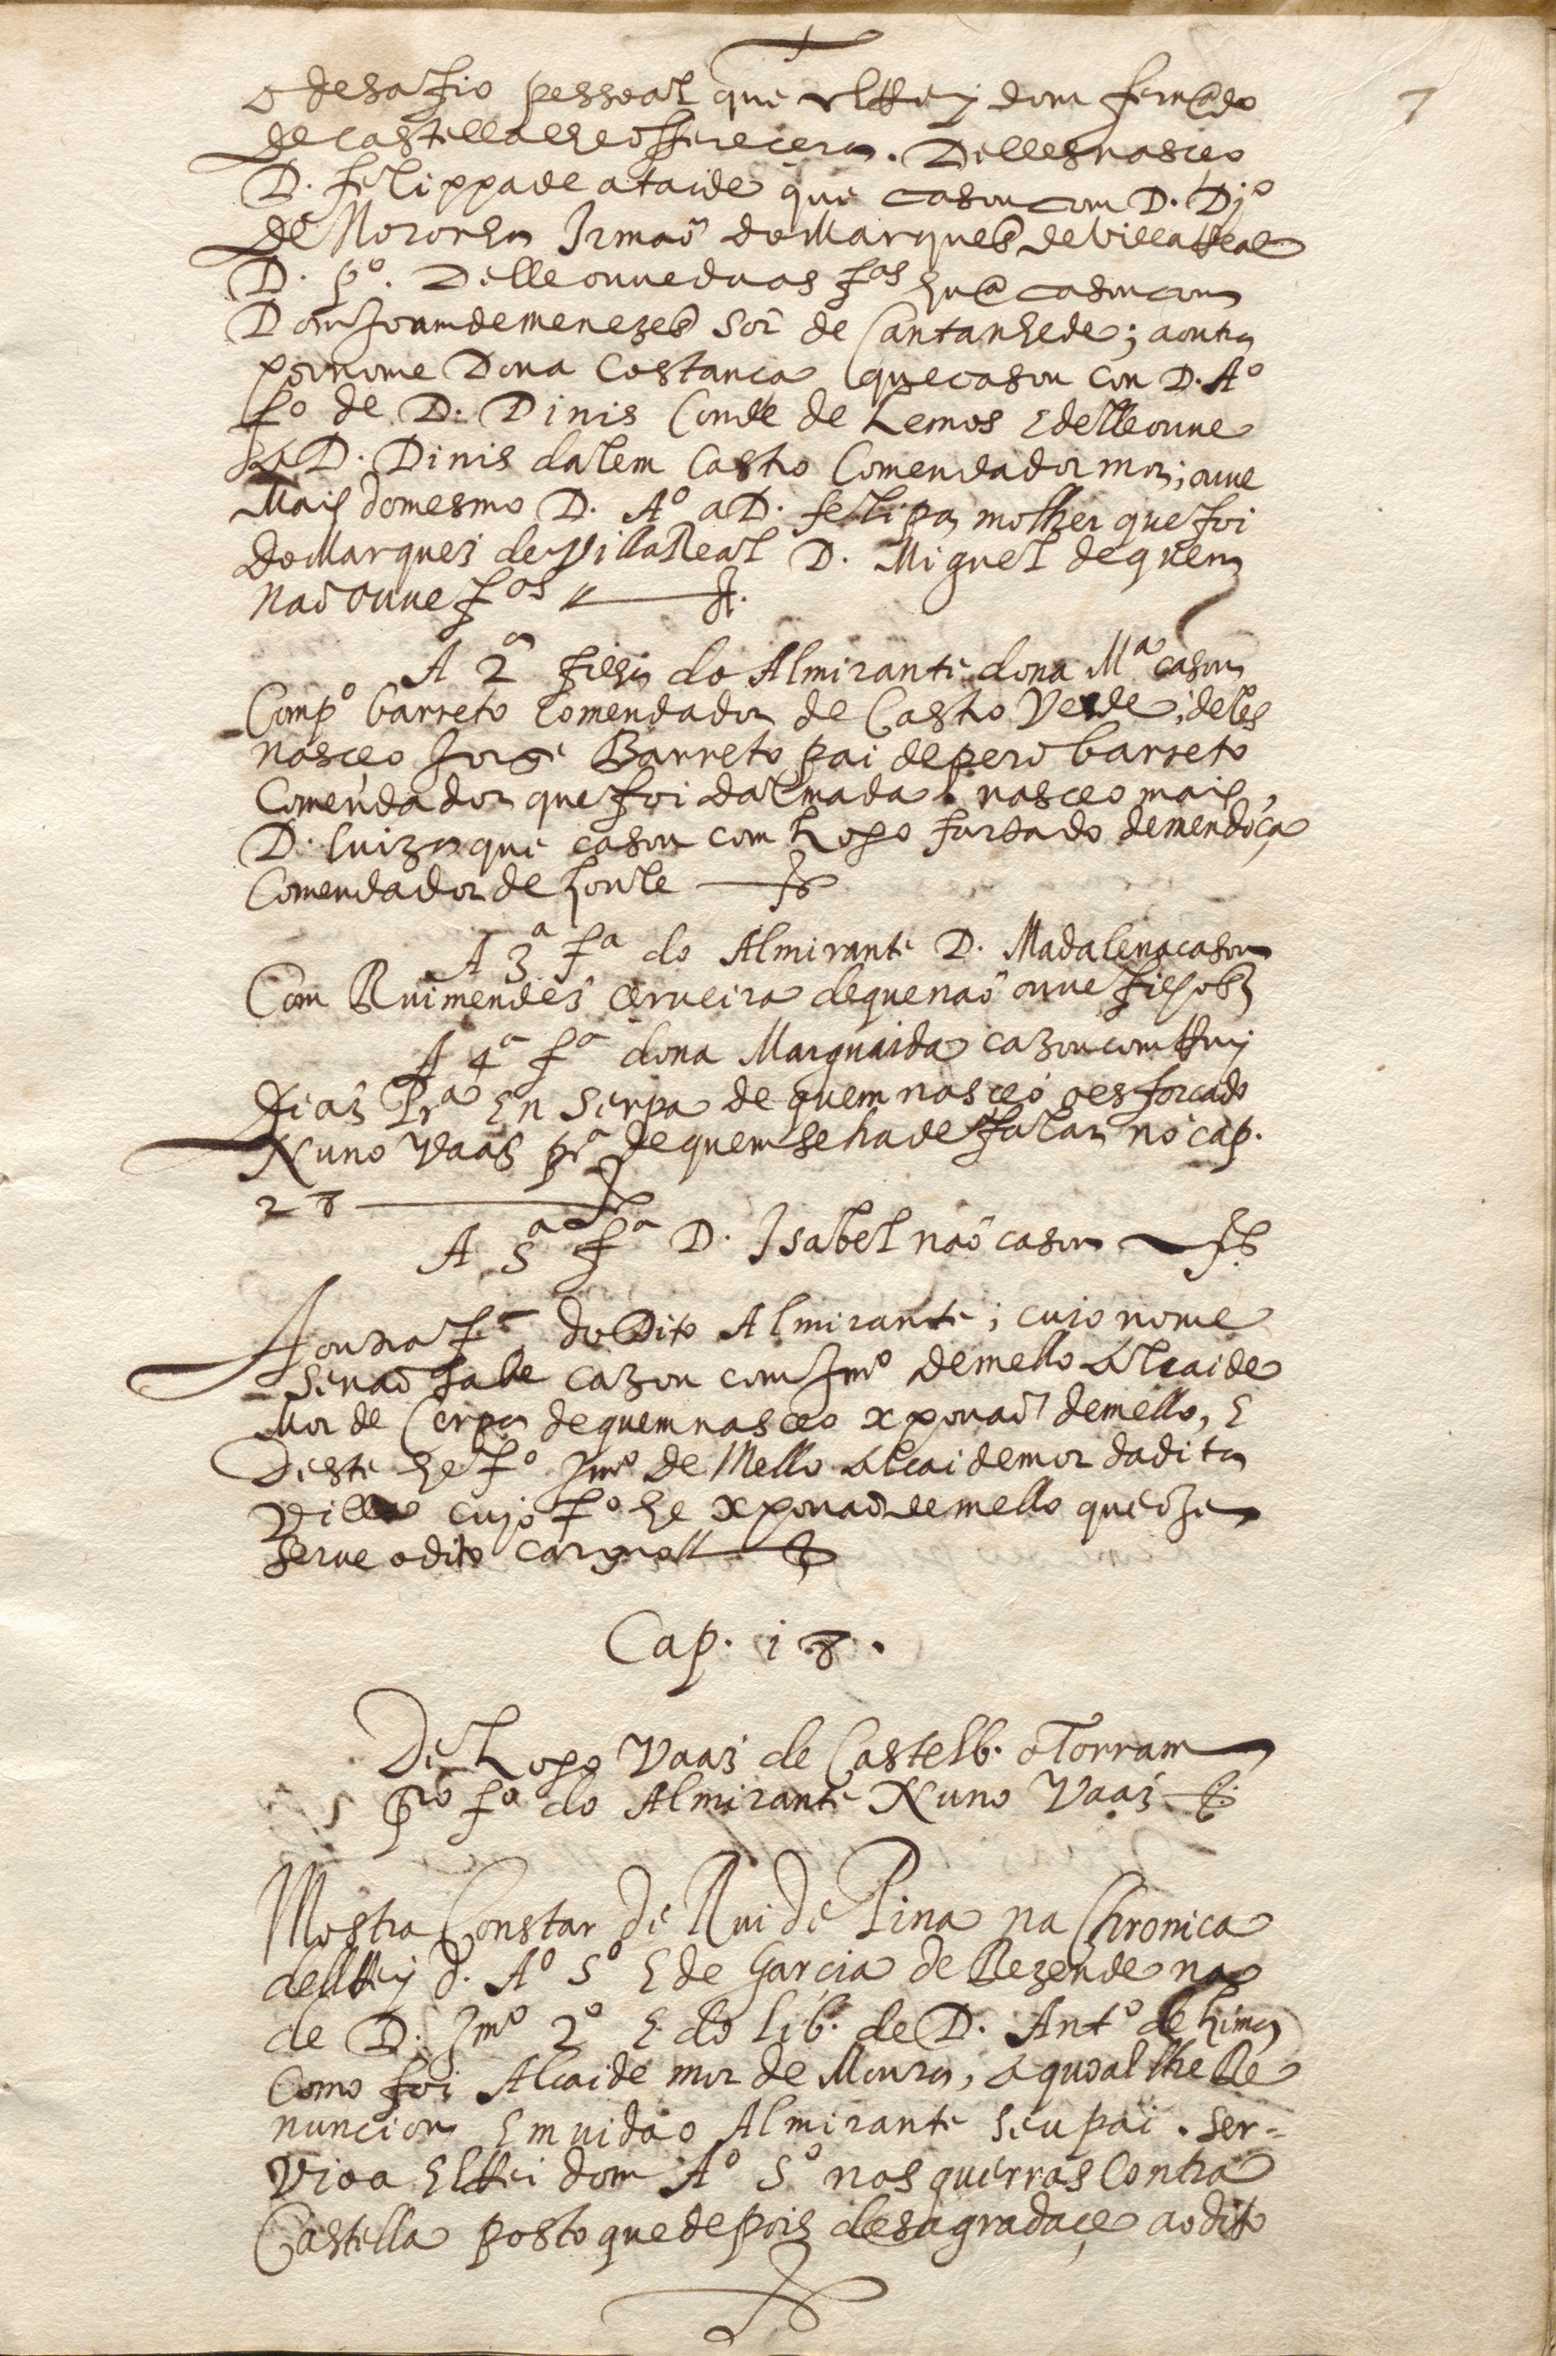 7
o desafio pessoal que elRei dom fern@do
de castella lhe offerecera. Delles nasceo
D. felippa de ataide que casou com D. Dj.º
de Noronha Irmaõ do Marques de Villa Real
D. pº. Delle ouue duas fas hu@ casou com
Dom Joam de menezes Sor de Cantanhede; a outra
por nome Dona Costanca que casou con D. Aº
fº de D. Dinis Conde de Lemos E delle ouue
a D. Dinis dalem Castro Comendador mor; ouue
Mais do mesmo D. Aº a D. felipa molher que foi
do Marques de Villa Real D. Miguel de quem
naõ ouue fos
A 2ª filha do Almirante dona Mª casou
Com pº barreto Comendador de Castro Verde; deles
nasceo Jorge Barreto pai de pero barreto
Comendador que foi dalmada. nasceo mais
D. luiza que casou com Lopo furtado de mendoça
Comendador de Loule
A 3ª fª do Almirante D. Madalena casou
Com Rui mendes cerueira de que naõ ouue filhos
A 4ª fª dona Marguaida cazou com Rui
Dias Prª En Serpa de quem nasceo o esforcado
Nuno Vaas prª de quem se ha de falar no cap.
28
A 5ª fª D. Isabel naõ casou
A outra fª do Dito Almirante; cujo nome
se naõ sabe cazou com Jmº de mello Alcaide
Mor de Cerpa de quem nasceo xpouaõ de mello, E
Deste he fº Jmº de Mello Alcaide mor da dita
Villa cujo fº he xpouaõ de mello que oje
serue o dito cargo
Cap. 18.
De Lopo Vaaz de Castelb. o Torram
1 Pro fº do Almirante Nuno Vaaz
Mostra Constar de Rui de Pina na Chronica
delRej d. Aº 5º E de Garcia de Rezende na
de D. Jmº 2º E do lib. de D. Antº de Lima
Como foi Alcaide mor de Moura, a quoal lhe Re
nunciou Em uida o Almirante seu pai. Ser=
Vio a ElRei dom Aº 5º nas guerras Contra
Castella posto que depois desagradace ao dito